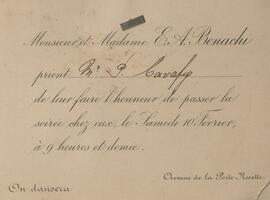 Monsieur et Madame E. A. Benachi
prient Mr P. Cavafy
de leur faire l'honneur de passer la
soirée chez eux, le Samedi 10 Février,
à 9 heures et demie.
Avenue de la Porte Rosette
On dansera